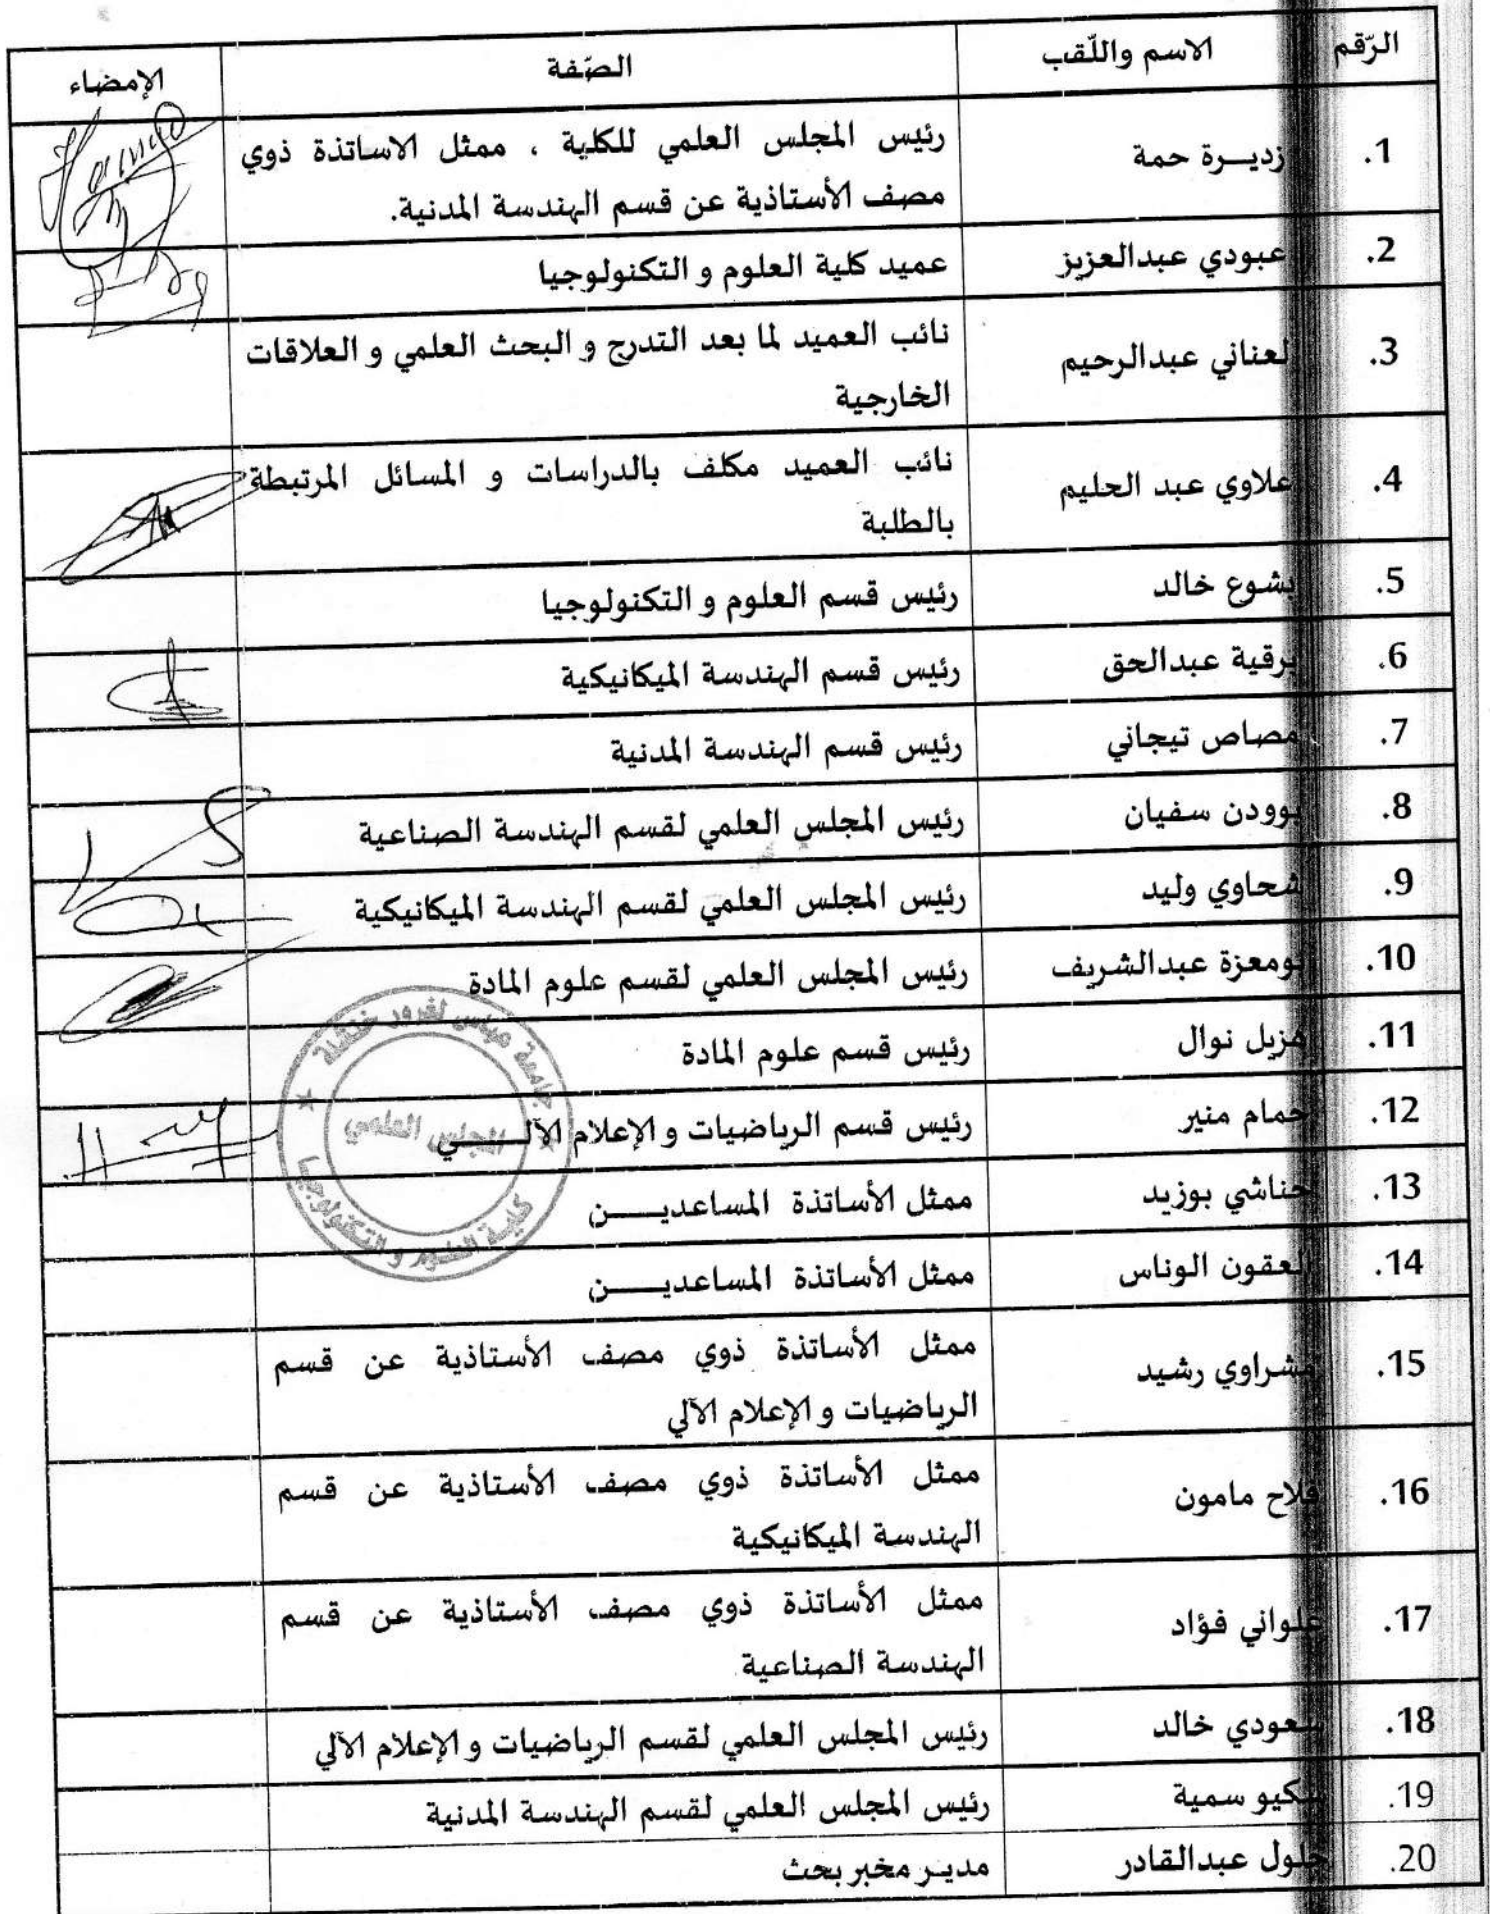 الرّقم الاسم واللّقب الصّفة الإمضاء
1. زديـــرة حمة رئيس المجلس العلمي للكلية ، ممثل الاساتذة ذوي
مصف الأستاذية عن قسم الهندسة المدنية.
2. عبودي عبدالعزيز عميد كلية العلوم و التكنولوجيا
3. لعناني عبدالرحيم نائب العميد لما بعد التدرج و البحث العلمي و العلاقات
الخارجية
4. علاوي عبد الحليم نائب العميد مكلف بالدراسات و المسائل المرتبطة
بالطلبة
5. بشوع خالد رئيس قسم العلوم و التكنولوجيا
6. برقية عبدالحق رئيس قسم الهندسة الميكانيكية
7. مصاص تيجاني رئيس قسم الهندسة المدنية
8. بوودن سفيان رئيس المجلس العلمي لقسم الهندسة الصناعية
9. شحاوي وليد رئيس المجلس العلمي لقسم الهندسة الميكانيكية
10. بومعزة عبدالشريف رئيس المجلس العلمي لقسم علوم المادة
11. هزيل نوال رئيس قسم علوم المادة
12. حمام منير رئيس قسم الرياضيات و الإعلام الآلـــــي
13. حناشي بوزيد ممثل الأساتذة المساعديـــــن
14. لعقون الوناس ممثل الأساتذة المساعديـــــن
15. مشراوي رشيد ممثل الأساتذة ذوي مصف الأستاذية عن قسم
الرياضيات و الإعلام الآلي
16. فلاح مامون ممثل الأساتذة ذوي مصف الأستاذية عن قسم
الهندسة الميكانيكية
17. علواني فؤاد ممثل الأساتذة ذوي مصف الأستاذية عن قسم
الهندسة الصناعية
18. سعودي خالد رئيس المجلس العلمي لقسم الرياضيات و الإعلام الآلي
19. سمية رئيس المجلس العلمي لقسم الهندسة المدنية
20. عبدالقادر مديـر مخبر بحث
جامعة عباس لغرور خنشلة
المجلس العلمي
كليـة العلـوم و التكنولوجيـا